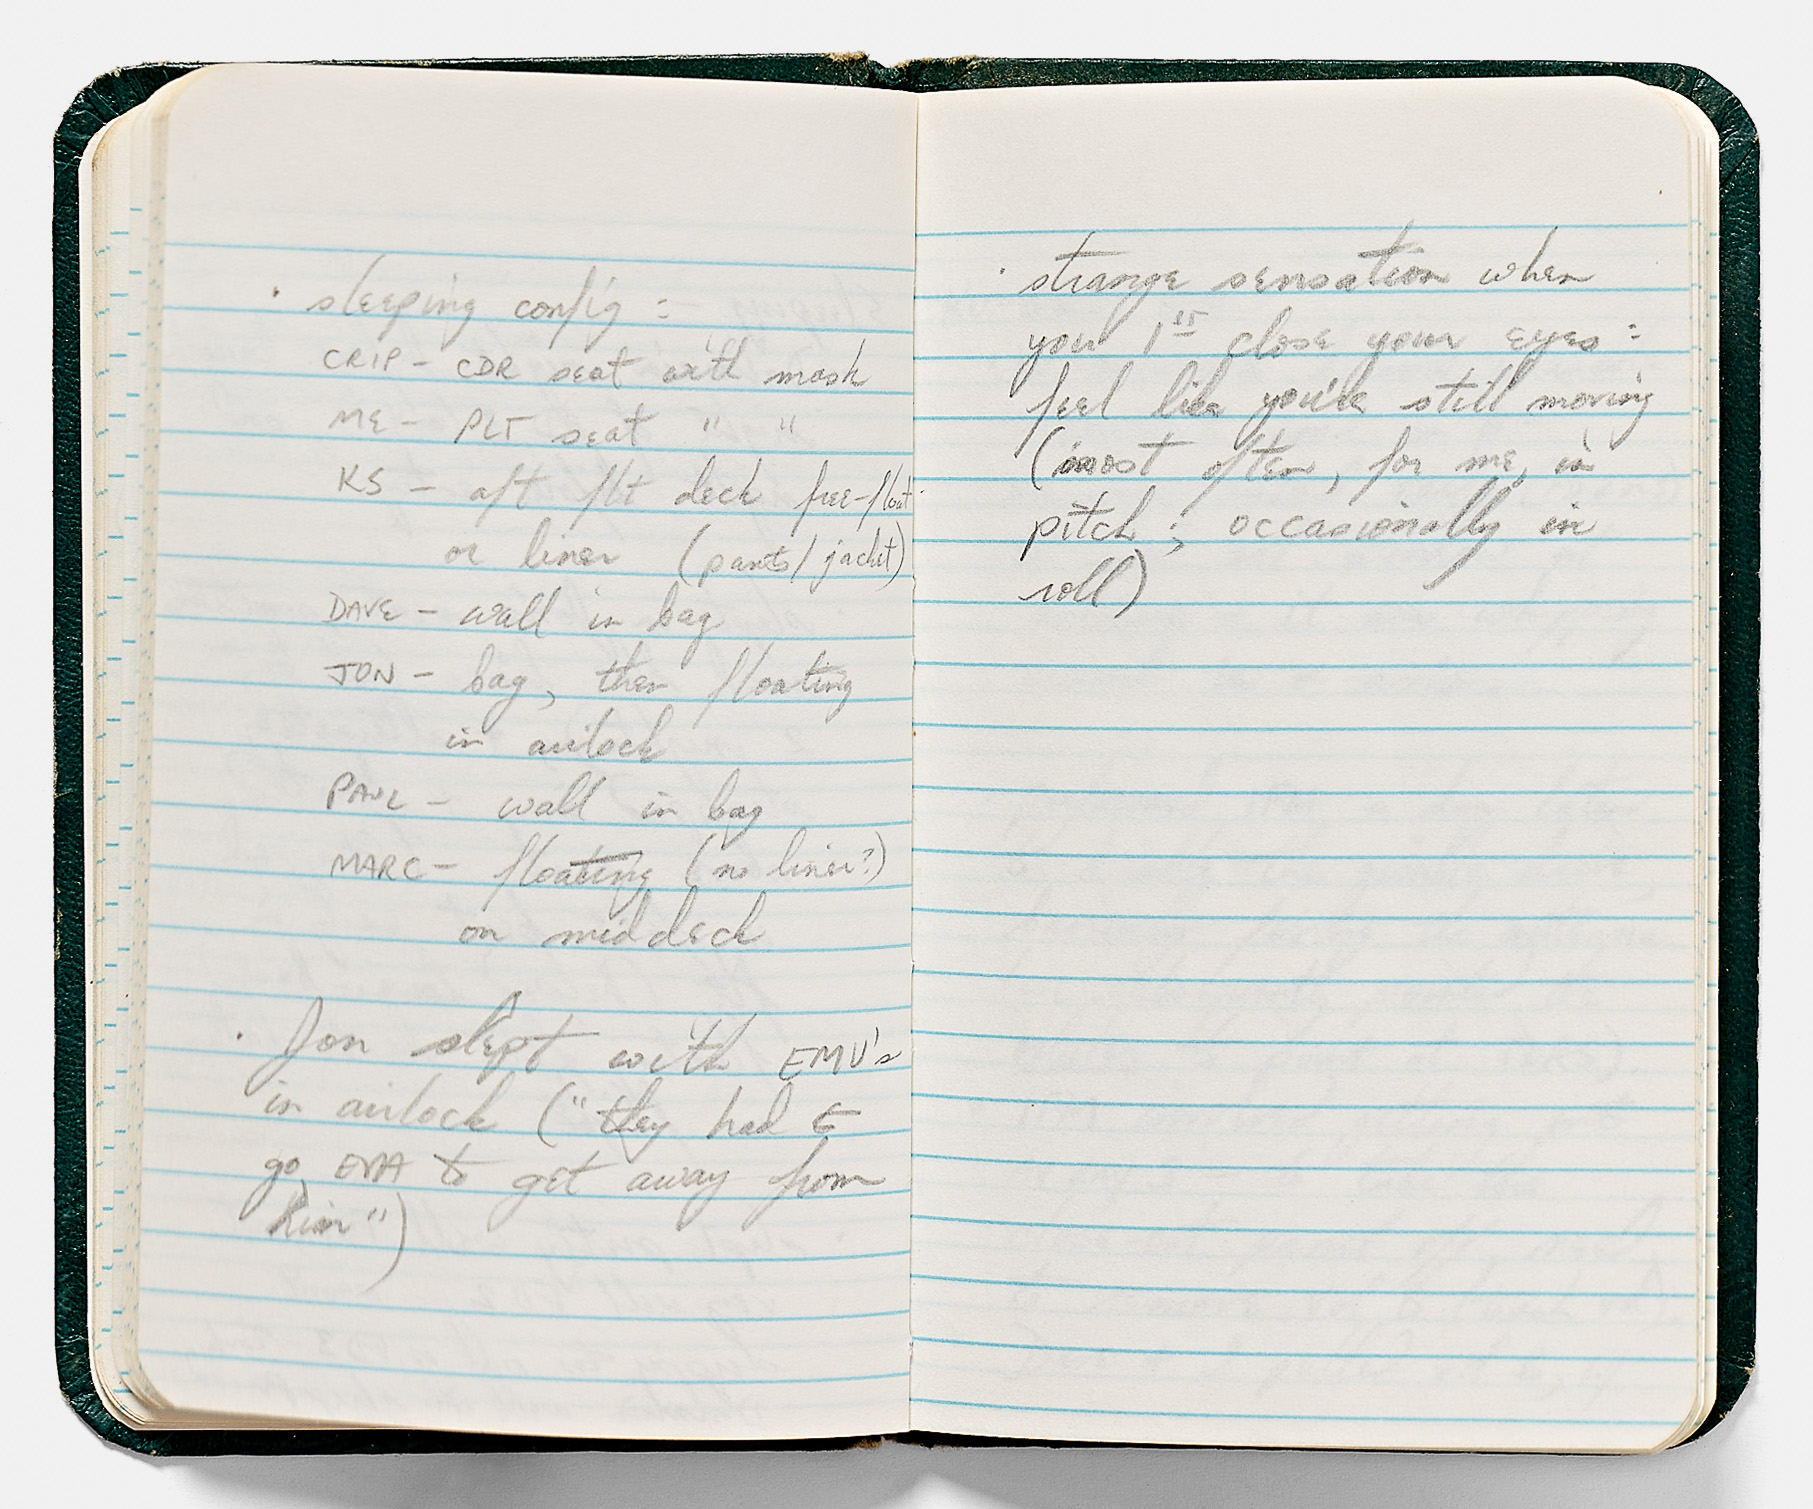 · sleeping config:
CRIP - CDR seat with mask
ME - PLT seat " "
KS - aft flt deck free-float
or liner (pants/jacket)
DAVE - wall in bag
JON - bag, then floating
in airlock
PAUL - wall in bag
MARC - floating (no liner?)
on middeck
· Jon slept with EMU's
in airlock ("they had to
go EVA to get away from
him")
· strange sensation when
you 1st close your eyes:
feel like you're still moving
(most often, for me, in
pitch; occasionally in
roll)